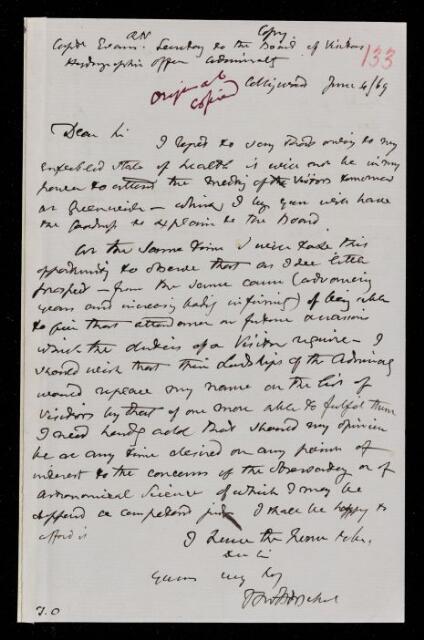 Copy
133
Capt Evans RN. Secretary to the Board of Visitors
Hydrographic Office Admiralty
Original
Copied
Collingwood June 4/69
Dear Sir
I regret to say that owing to my
enfeebled state of health it will not be in my
power to attend the meeting of the Visitors tomorrow
at Greenwich – which I beg you will have
the goodness to explain to the Board
At the same time I will take this
opportunity to observe that as I see little
prospect – from the same cause (advancing
years and increasing bodily infirmity) of being able
to give that attendance on future occasions
which the duties of a Visitor require – I
should wish that their Lordships of the Admiralty
would replace my name on the list of
Visitors by that of one more able to fulfil them
I need hardly add that should my opinion
be at any time desired on any point of
interest to the concerns of the Observatory or of
Astronomical Science of which I may be
a competent judge I shall be happy to
afford it
I have the honor to be
Dear Sir
Yours very
JFW Herschel
T.O